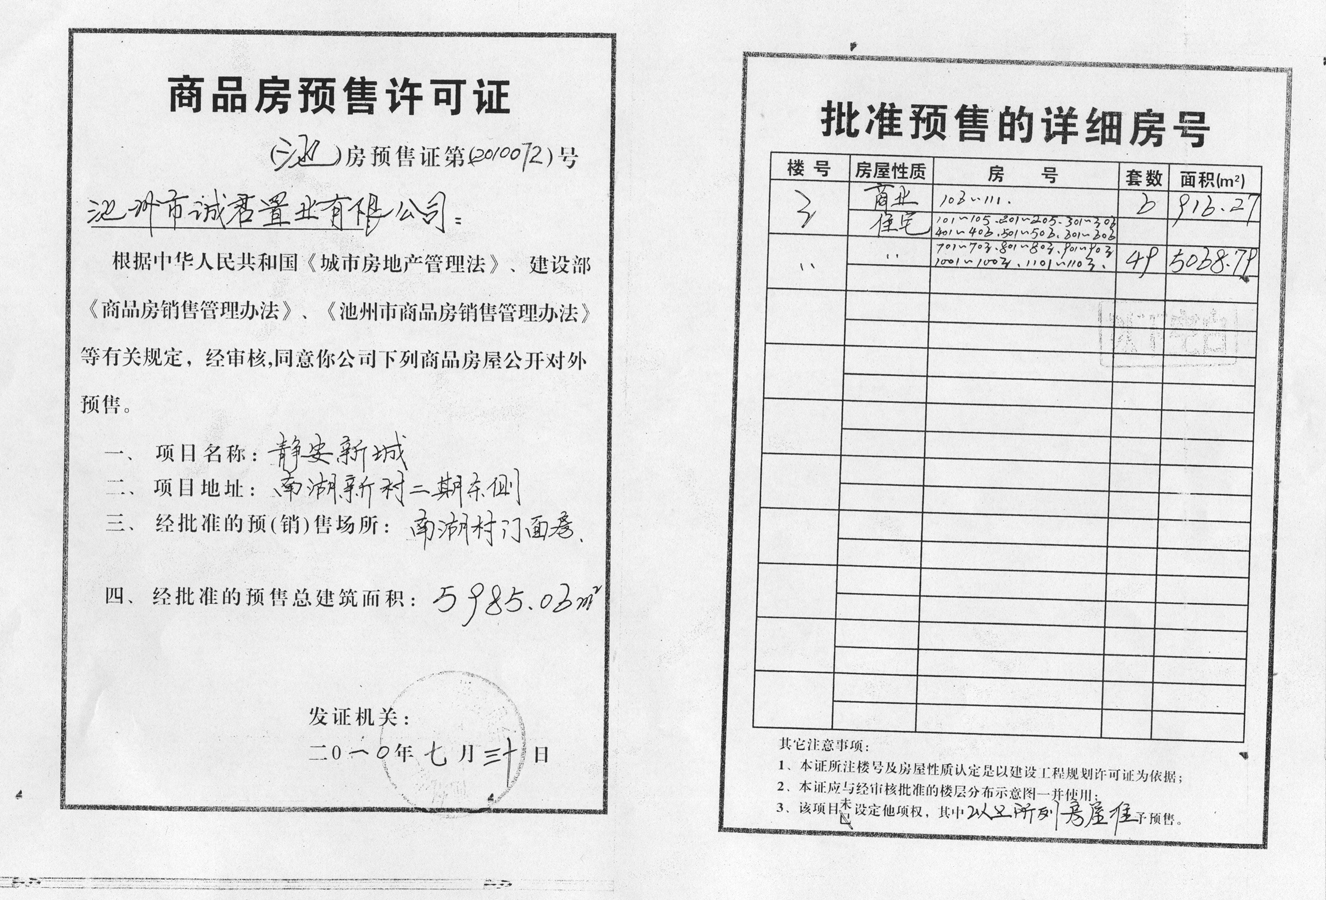 商品房预售许可证
(池)房预售证第(2010072)号
池州市诚君置业有限公司：
根据中华人民共和国《城市房地产管理法》、建设部
《商品房销售管理办法》、《池州市商品房销售管理办法》
等有关规定，经审核，同意你公司下列商品房屋公开对外
预售。
一、项目名称：静安新城
二、项目地址：南湖新村二期东侧
三、经批准的预(销)售场所：南湖村门面房.
四、经批准的预售总建筑面积：5985.06m²
发证机关：
二〇一〇年七月三十日
批准预售的详细房号
楼号 房屋性质 房号 套数 面积(m²)
商业 106~111. 6 916.27
住宅 101~105.201~205.301~306
401~406.501~506.601~606
〃 〃 701~703.801~803.901~903 49 5068.79
1001~1003.1101~1103.
其它注意事项：
1、本证所注楼号及房屋性质认定是以建设工程规划许可证为依据；
2、本证应与经审核批准的楼层分布示意图一并使用；
3、该项目未/已设定他项权，其中以上所列房屋准予预售。